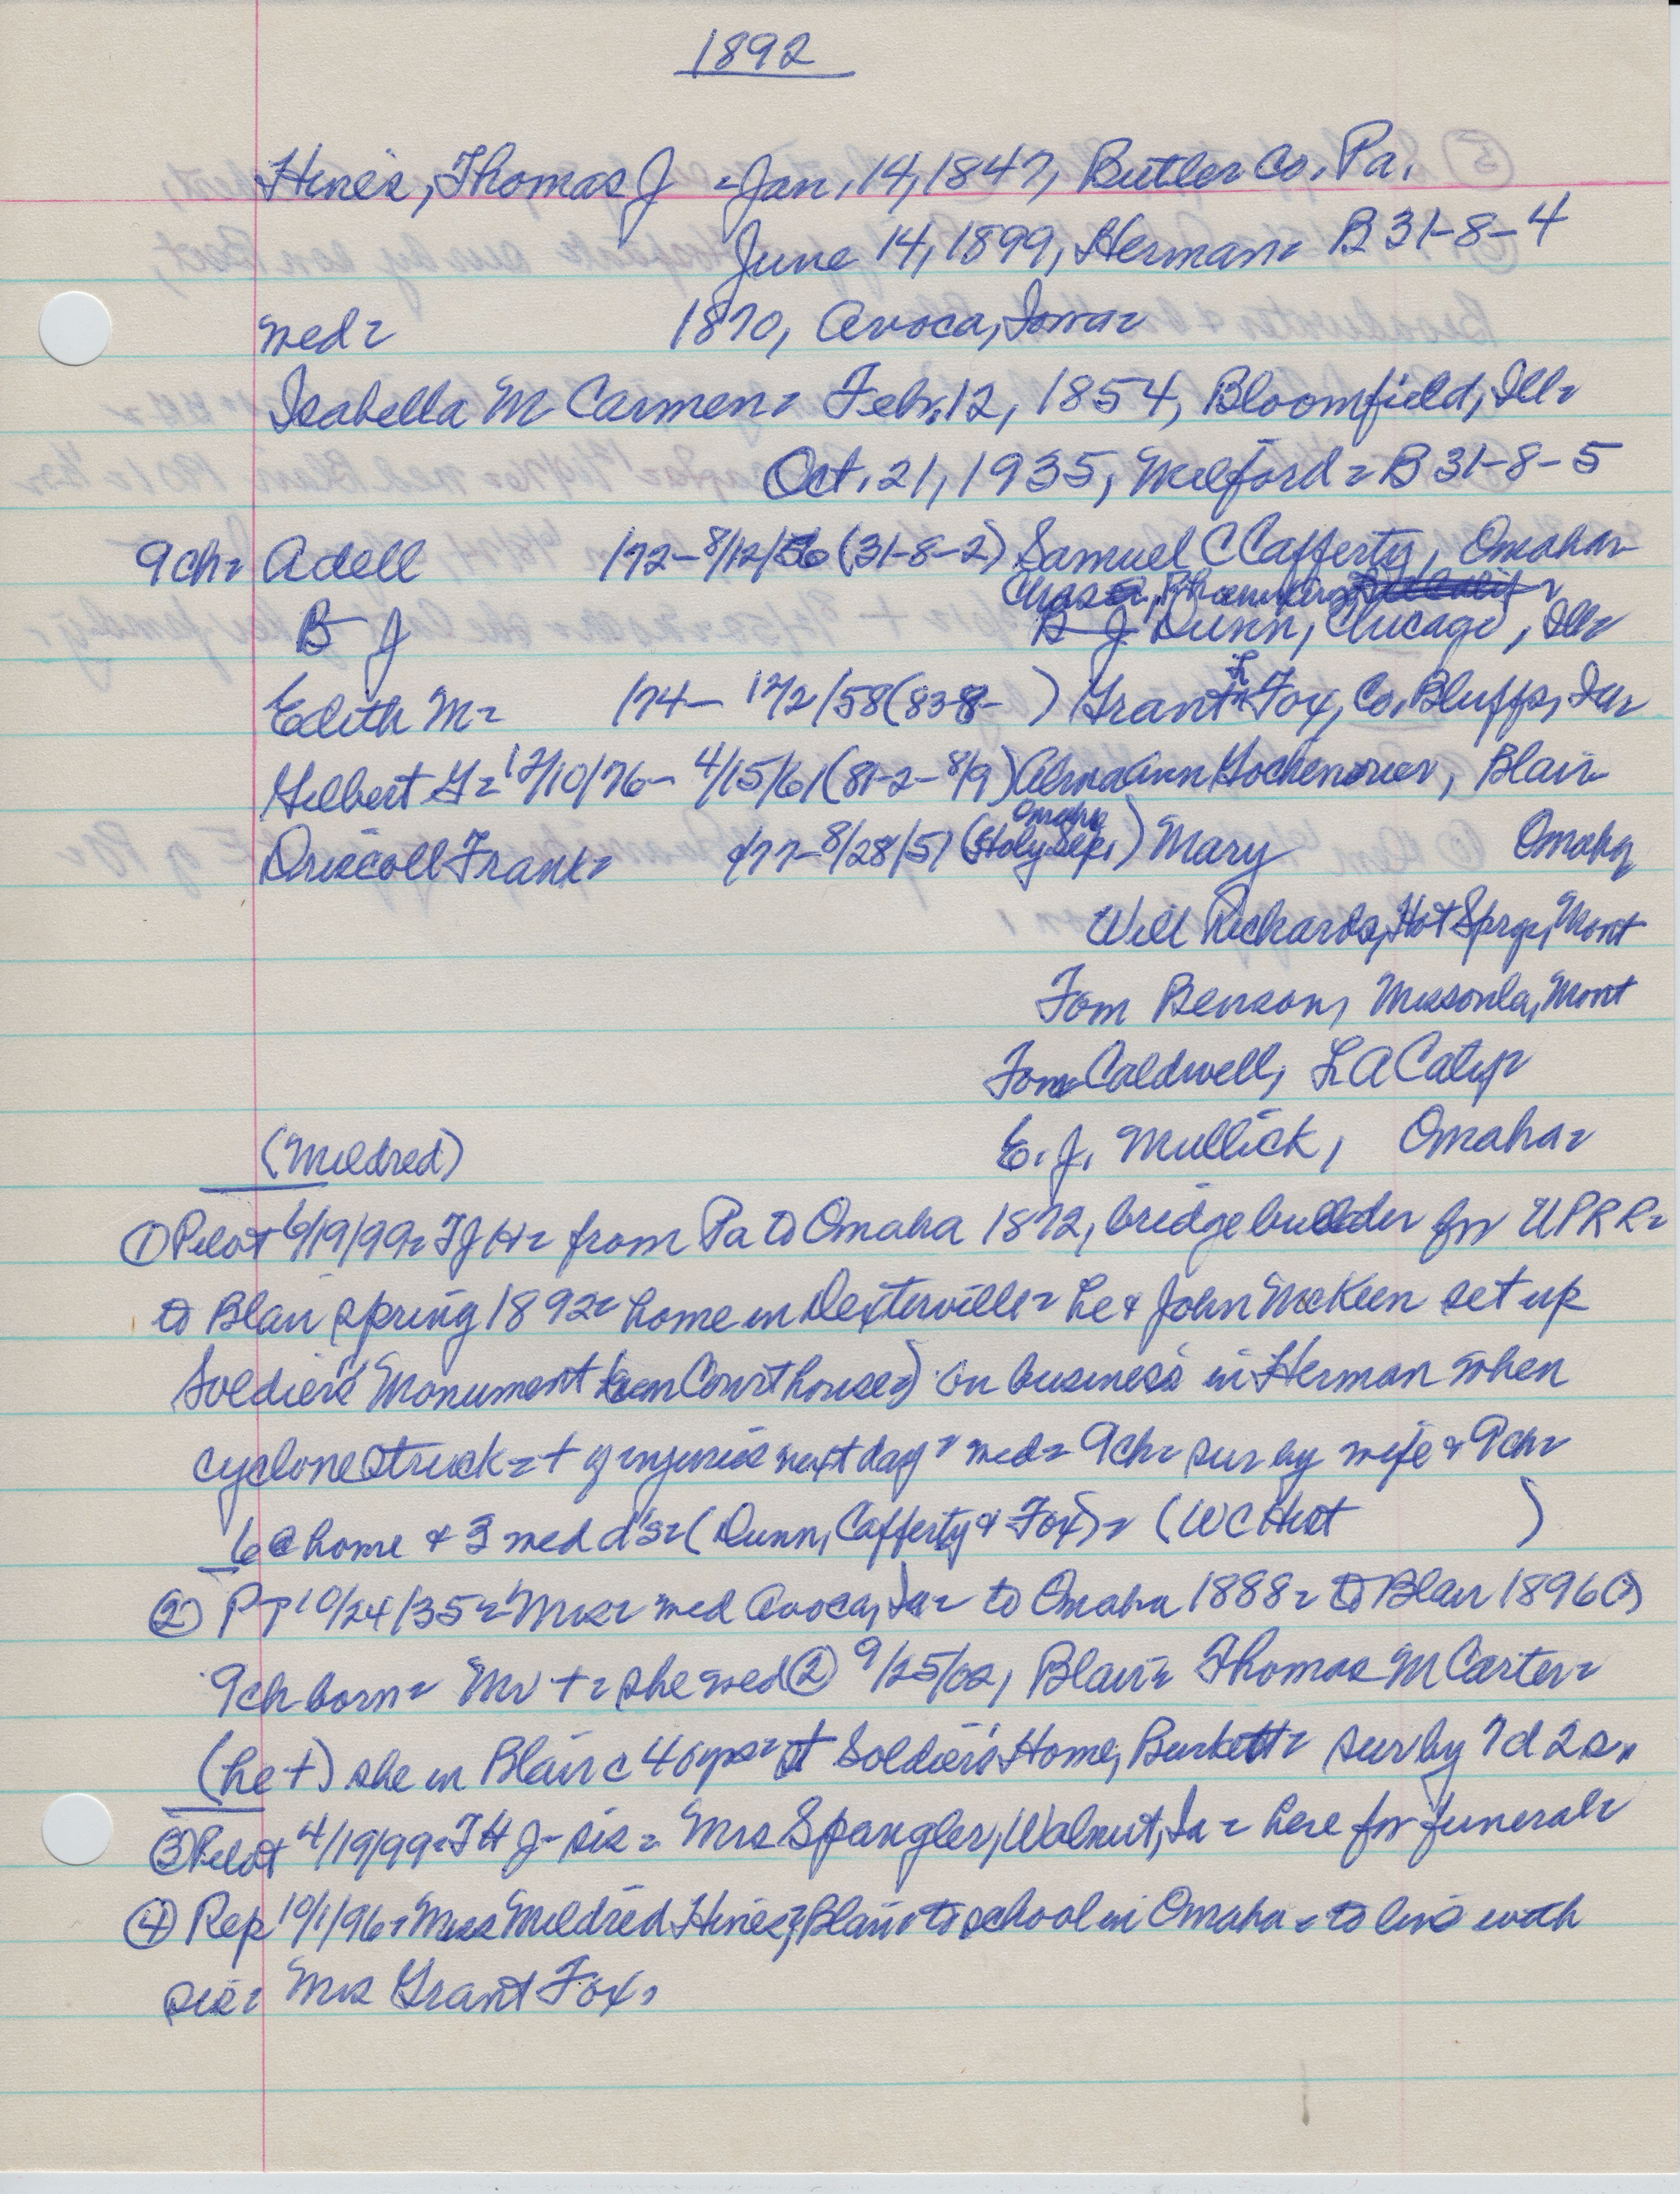 1892
Hines, Thomas J = Jan. 14, 1847, Butler Co, Pa.
June 14, 1899, Herman = B 31-8-4
wed = 1870, Avoca, Iowa =
Isabella M Carmen = Feb. 12, 1854, Bloomfield, Ill =
Oct. 21, 1935, Milford = B 31-8-5
9ch = Adell /72 - 8/12/56 (31-8-2) Samuel C Cafferty, Omaha =
Chas
B J B J Dunn, Chicago, Ill =
Edith M = /74 - 12/2/58 (83-8- ) Grant L Fox, Co. Bluffs, Ia =
Gilbert G = 12/10/76 - 4/15/61 (81-2-8/9) Alma Ann Gochenour, Blair =
Omaha
Driscoll Frank = /77 - 8/28/51 (Holy Sep.) Mary Omaha
Will Richards, Hot Sprgs, Mont
Tom Benson, Missonla, Mont
Tom Caldwell, LA Calif =
(Mildred) E. J. Mullick, Omaha =
① Pilot 6/19/99 = TJH = from Pa to Omaha 1872, bridge builder for UPRR =
to Blair spring 1892 = home in Dexterville = he & John McKeen set up
Soldiers' Monument (on Courthouse) on business in Herman when
cyclone struck = + of injuries next day = wed = 9ch = sur by wife & 9ch =
6 @ home & 3 wed d's = (Dunn, Cafferty & Fox) = (WC Hist )
② PT 10/24/35 = Mrs = wed Avoca, Ia = to Omaha 1888 = to Blair 1896 (?)
9ch born = Mr + = she wed ② 9/25/02, Blair = Thomas M Carter =
(he +) she in Blair c 40 yrs = at Soldiers' Home, Burkett = sur by 7d 2s.
③ Pilot 4/19/99 = THJ - sis = Mrs Spangler, Walnut, Ia = here for funeral =
④ Rep 10/1/96 = Miss Mildred Hines, Blair = to school in Omaha = to live with
sis = Mrs Grant Fox.